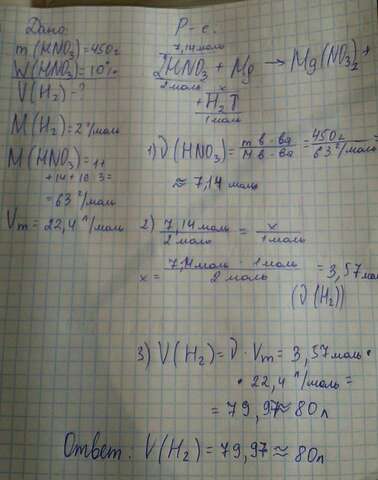 Дано:
m(HNO₃)=450г
W(HNO₃)=10%
V(H₂)=?
M(H₂)=2г/моль
M(HNO₃)=1+
+14+16·3=
=63г/моль
Vm=22,4л/моль
Р-е.
7,14моль x
2HNO₃ + Mg → Mg(NO₃)₂+
2моль
+H₂↑
1моль
1) ν(HNO₃)= m в-ва / M в-ва = 450г / 63г/моль
≈ 7,14 моль
2) 7,14моль / 2 моль = x / 1моль
x = 7,14моль · 1моль / 2 моль = 3,57моль
(ν(H₂))
3) V(H₂)=ν·Vm = 3,57моль·
· 22,4 л/моль =
= 79,97≈80л
Ответ: V(H₂)=79,97≈80л